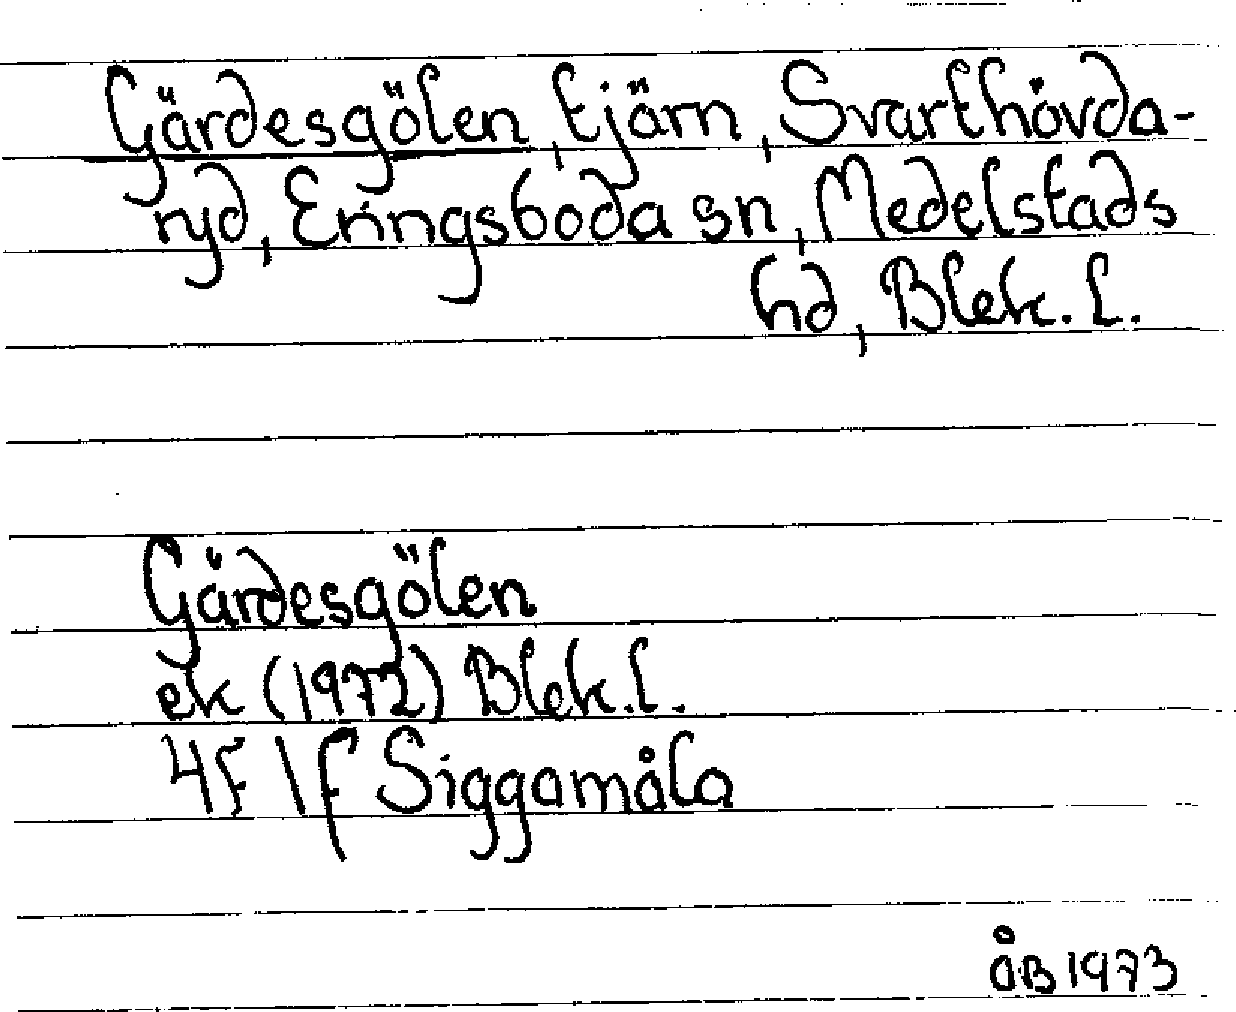 Gärdesgölen, tjärn, Svarthövda-
ryd, Eringsboda sn, Medelstads
hd, Blek. l.
Gärdesgölen
ek (1972) Blek. l.
4F 1f Siggamåla
ÅB 1973